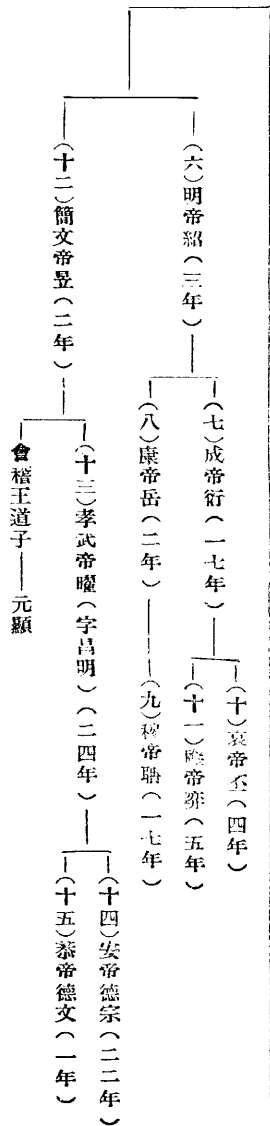 （六）明帝紹（三年）
（七）成帝衍（一七年）
（十）哀帝丕（四年）
（十一）帝弈（五年）
（八）康帝岳（二年）
（九）穆帝聃（一七年）
（十二）簡文帝昱（二年）
（十三）孝武帝曜（字昌明）（二四年）
（十四）安帝德宗（二二年）
（十五）恭帝德文（一年）
會稽王道子——元顯